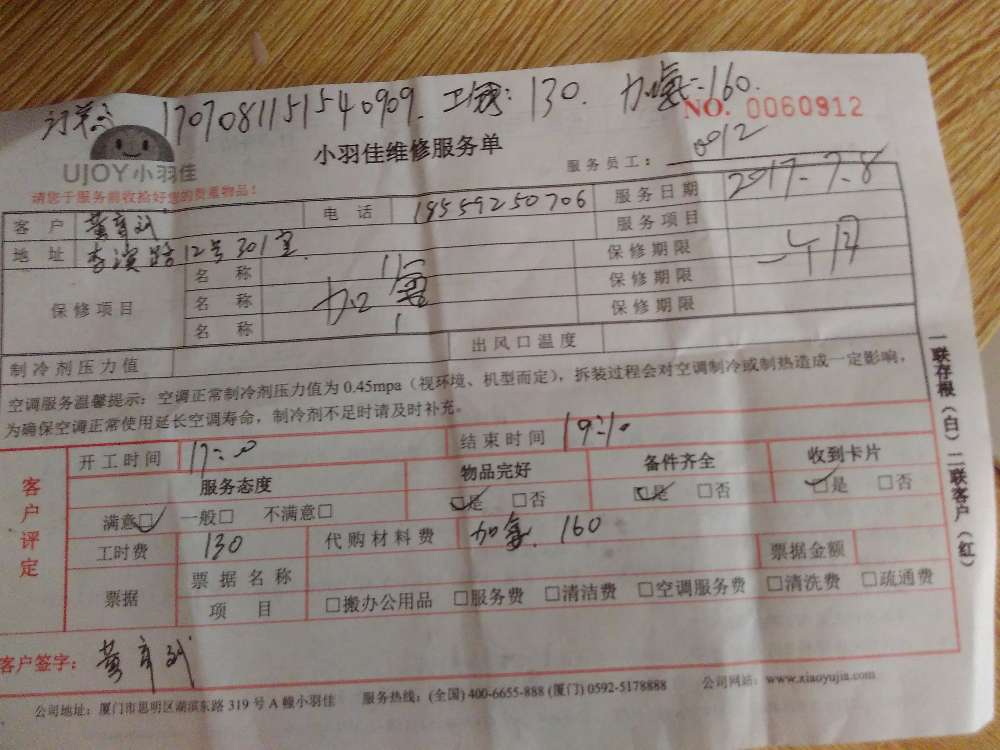 订单 1707081151540909. 工钱: 130. 加氟:160.
NO. 0060912
UJOY小羽佳
小羽佳维修服务单
服务员工: 0012
请您于服务前收拾好您的贵重物品!
客 户 电 话 18559250706 服务日期 2017.7.8
地 址 李演路12号301室 服务项目
保修项目 名 称 加氟 保修期限 一个月
名 称 保修期限
名 称 保修期限
制冷剂压力值 出风口温度
空调服务温馨提示:空调正常制冷剂压力值为 0.45mpa(视环境、机型而定),拆装过程会对空调制冷或制热造成一定影响,
为确保空调正常使用延长空调寿命,制冷剂不足时请及时补充。
客户评定 开工时间 17:00 结束时间 19:10
服务态度 物品完好 备件齐全 收到卡片
满意□ 一般□ 不满意□ □是 □否 □是 □否 □是 □否
工时费 130 代购材料费 加氟. 160 票据金额
票据 票据名称
项 目 □搬办公用品 □服务费 □清洁费 □空调服务费 □清洗费 □疏通费
客户签字:
公司地址:厦门市思明区湖滨东路 319 号 A 幢小羽佳 服务热线:(全国) 400-6655-888 (厦门) 0592-5178888 公司网站:www.xiaoyujia.com
一联存根(白)二联客户(红)